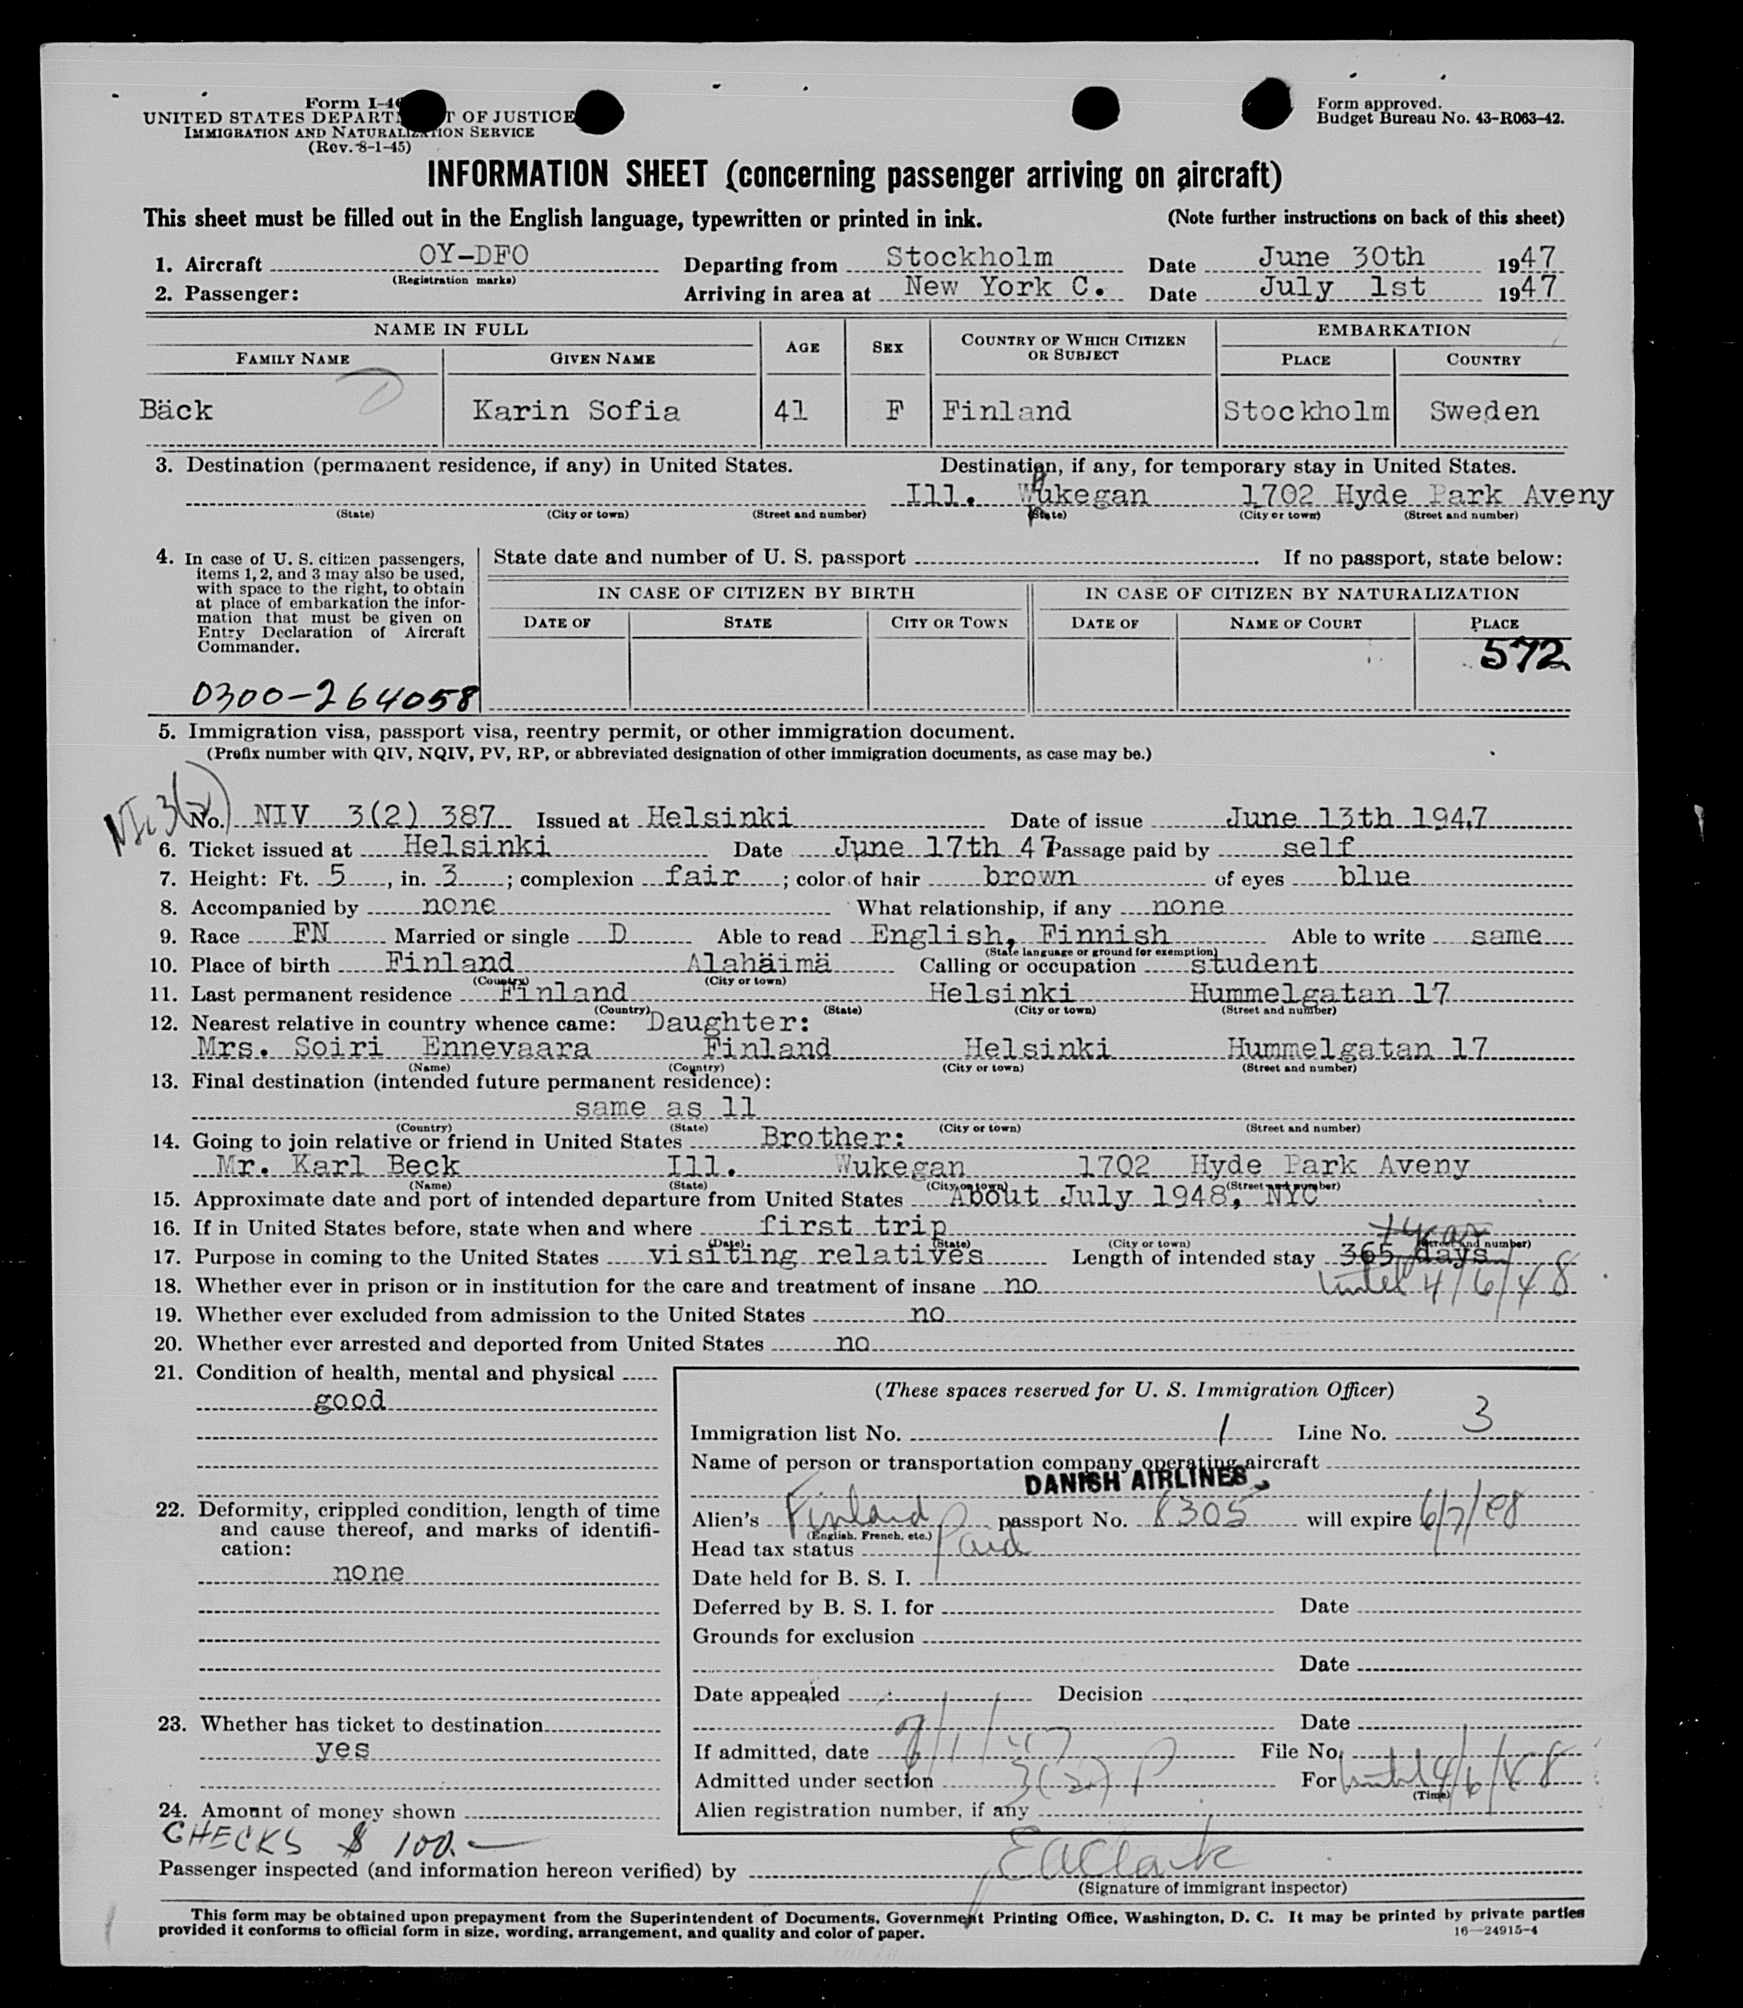 Form I-4
UNITED STATES DEPART T OF JUSTICE
IMMIGRATION AND NATURALIZATION SERVICE
(Rev. 8-1-45)
Form approved.
Budget Bureau No. 43-R063-42.
INFORMATION SHEET (concerning passenger arriving on aircraft)
This sheet must be filled out in the English language, typewritten or printed in ink. (Note further instructions on back of this sheet)
1. Aircraft OY-DFO Departing from Stockholm Date June 30th 1947
(Registration marks)
2. Passenger: Arriving in area at New York C. Date July 1st 1947
NAME IN FULL AGE SEX COUNTRY OF WHICH CITIZEN OR SUBJECT EMBARKATION
FAMILY NAME GIVEN NAME PLACE COUNTRY
Bäck Karin Sofia 41 F Finland Stockholm Sweden
3. Destination (permanent residence, if any) in United States. Destination, if any, for temporary stay in United States.
Ill. Wukegan 1702 Hyde Park Aveny
(State) (City or town) (Street and number) (State) (City or town) (Street and number)
4. In case of U. S. citizen passengers, items 1, 2, and 3 may also be used, with space to the right, to obtain at place of embarkation the information that must be given on Entry Declaration of Aircraft Commander.
State date and number of U. S. passport If no passport, state below:
IN CASE OF CITIZEN BY BIRTH IN CASE OF CITIZEN BY NATURALIZATION
DATE OF STATE CITY OR TOWN DATE OF NAME OF COURT PLACE
572
0300-264058
5. Immigration visa, passport visa, reentry permit, or other immigration document.
(Prefix number with QIV, NQIV, PV, RP, or abbreviated designation of other immigration documents, as case may be.)
No. NIV 3(2) 387 Issued at Helsinki Date of issue June 13th 1947
6. Ticket issued at Helsinki Date June 17th 47 Passage paid by self
7. Height: Ft. 5, in. 3; complexion fair; color of hair brown of eyes blue
8. Accompanied by none What relationship, if any none
9. Race FN Married or single D Able to read English, Finnish Able to write same
(State language or ground for exemption)
10. Place of birth Finland Alahäimä Calling or occupation student
(Country) (City or town)
11. Last permanent residence Finland Helsinki Hummelgatan 17
(Country) (State) (City or town) (Street and number)
12. Nearest relative in country whence came: Daughter:
Mrs. Soiri Ennevaara Finland Helsinki Hummelgatan 17
(Name) (Country) (City or town) (Street and number)
13. Final destination (intended future permanent residence):
same as 11
(Country) (State) (City or town) (Street and number)
14. Going to join relative or friend in United States Brother:
Mr. Karl Beck Ill. Wukegan 1702 Hyde Park Aveny
(Name) (State) (City or town) (Street and number)
15. Approximate date and port of intended departure from United States About July 1948, NYC
16. If in United States before, state when and where first trip
1 year
(Date) (State) (City or town) (Street and number)
17. Purpose in coming to the United States visiting relatives Length of intended stay 365 days
until 4/6/48
18. Whether ever in prison or in institution for the care and treatment of insane no
19. Whether ever excluded from admission to the United States no
20. Whether ever arrested and deported from United States no
21. Condition of health, mental and physical
good
22. Deformity, crippled condition, length of time and cause thereof, and marks of identification:
none
23. Whether has ticket to destination
yes
24. Amount of money shown
CHECKS $ 100.—
(These spaces reserved for U. S. Immigration Officer)
Immigration list No. 1 Line No. 3
Name of person or transportation company operating aircraft
DANISH AIRLINES
Alien's Finland passport No. 8305 will expire 6/7/48
(English, French, etc.)
Head tax status Paid
Date held for B. S. I.
Deferred by B. S. I. for Date
Grounds for exclusion
Date
Date appealed Decision
Date
If admitted, date 7/1/47 File No.
Admitted under section 3(2) P For until 4/6/48
(Time)
Alien registration number, if any
Passenger inspected (and information hereon verified) by EAClark
(Signature of immigrant inspector)
This form may be obtained upon prepayment from the Superintendent of Documents, Government Printing Office, Washington, D. C. It may be printed by private parties
provided it conforms to official form in size, wording, arrangement, and quality and color of paper. 16—24915-4